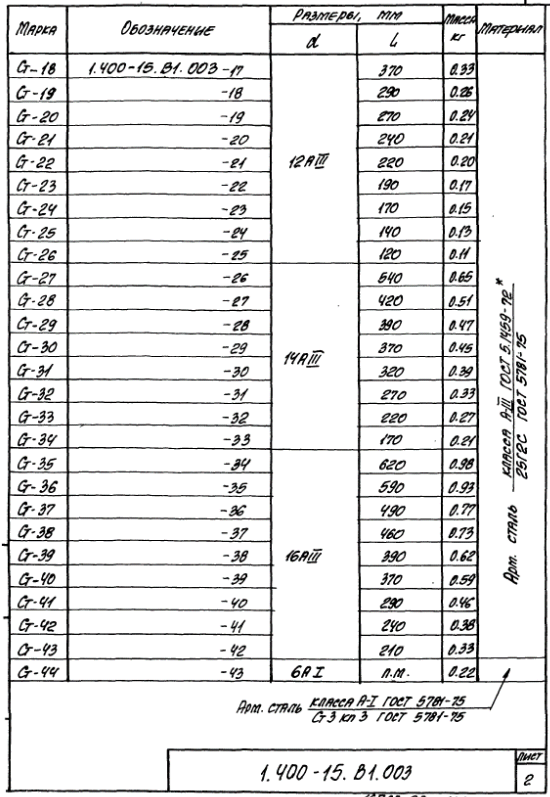 Марка Обозначение Размеры, мм Масса кг Материал
d L
Ст-18 1.400-15.В1.003-17 370 0.33
Ст-19 -18 290 0.26
Ст-20 -19 270 0.24
Ст-21 -20 240 0.21
Ст-22 -21 12АIII 220 0.20
Ст-23 -22 190 0.17
Ст-24 -23 170 0.15
Ст-25 -24 140 0.13
Ст-26 -25 120 0.11
Ст-27 -26 540 0.65
Ст-28 -27 420 0.51
Ст-29 -28 390 0.47
Ст-30 -29 14АIII 370 0.45
Ст-31 -30 320 0.39
Ст-32 -31 270 0.33
Ст-33 -32 220 0.27
Ст-34 -33 170 0.21
Ст-35 -34 620 0.98
Ст-36 -35 590 0.93
Ст-37 -36 490 0.77
Ст-38 -37 460 0.73
Ст-39 -38 16АIII 390 0.62
Ст-40 -39 370 0.59
Ст-41 -40 290 0.46
Ст-42 -41 240 0.38
Ст-43 -42 210 0.33
Ст-44 -43 6АI п.м. 0.22
Арм. сталь класса А-III ГОСТ 5.1459-72*
25Г2С ГОСТ 5781-75
Арм. сталь класса А-I ГОСТ 5781-75
Ст3 кп3 ГОСТ 5781-75
1.400-15.В1.003
Лист
2